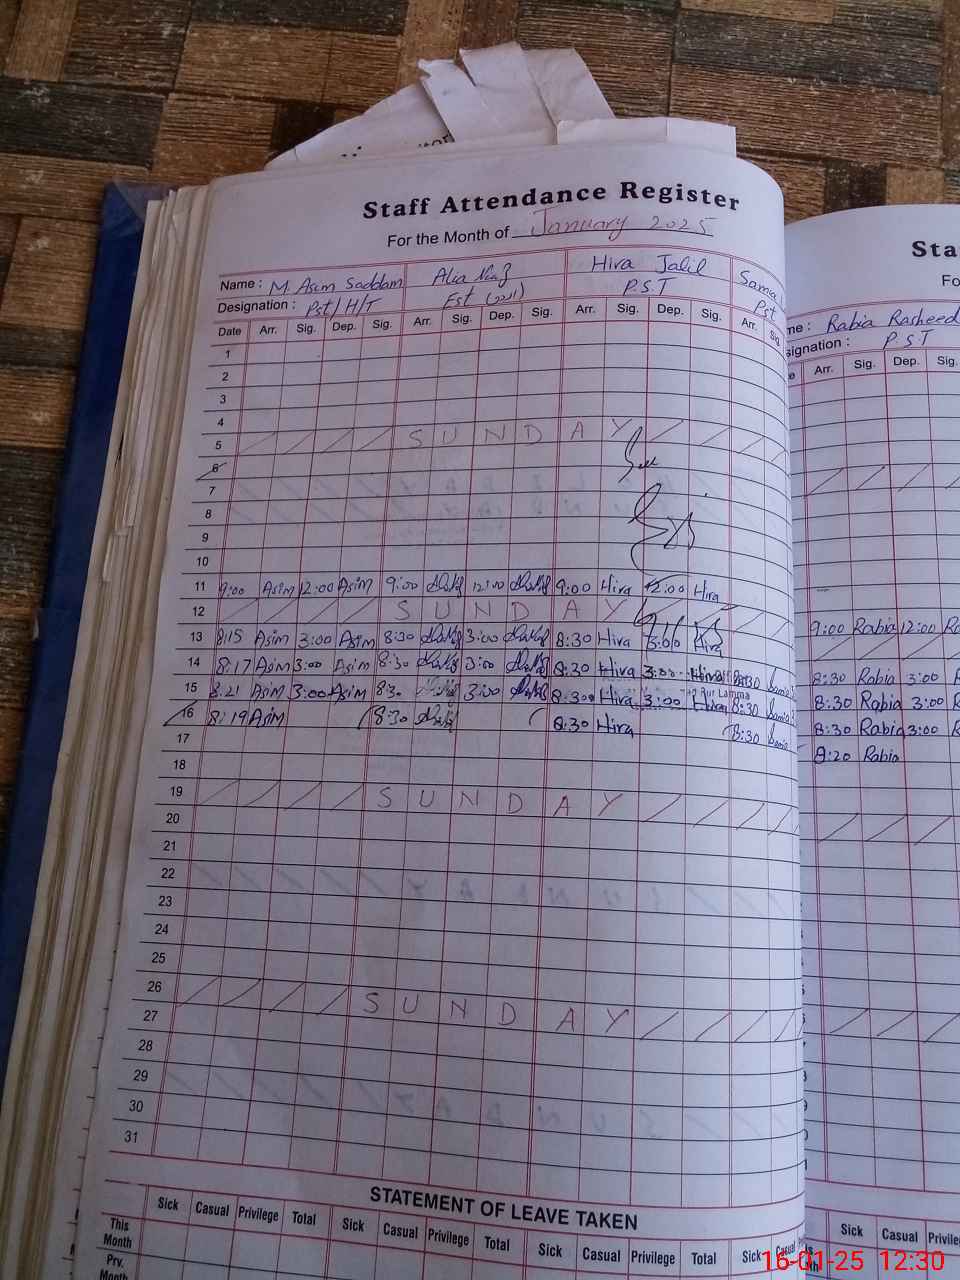 Staff Attendance Register
For the Month of January 2025
Name : M Asim Saddam Hira Jalil Samia
Designation : Pst/ H/T Est P.S.T Pst
Date Arr. Sig. Dep. Sig. Arr. Sig. Dep. Sig. Arr. Sig. Dep. Sig. Arr. Sig.
1
2
3
4
5 S U N D A Y
6
7
8
9
10
11 9:00 Asim 12:00 Asim 9:00 12:00 9:00 Hira 12:00 Hira
12 S U N D A Y
13 8:15 Asim 3:00 Asim 8:30 3:00 8:30 Hira 3:00 Hira
14 8:17 Asim 3:00 Asim 8:30 3:00 8:30 Hira 3:00 Hira 8:30 Samia
15 8:21 Asim 3:00 Asim 8:30 3:00 8:30 Hira 3:00 Hira 8:30 Samia
16 8:19 Asim 8:30 8:30 Hira 8:30 Samia
17
18
19 S U N D A Y
20
21
22
23
24
25
26 S U N D A Y
27
28
29
30
31
STATEMENT OF LEAVE TAKEN
Sick Casual Privilege Total Sick Casual Privilege Total Sick Casual Privilege Total Sick Casual
This Month
Prv. Month
Sta
Fo
me : Rabia Rasheed
signation : P.S.T
Arr. Sig. Dep. Sig.
9:00 Rabia 12:00 Ra
8:30 Rabia 3:00
8:30 Rabia 3:00
8:30 Rabia 3:00
8:20 Rabia
Sick Casual Privilege
16-01-25 12:30